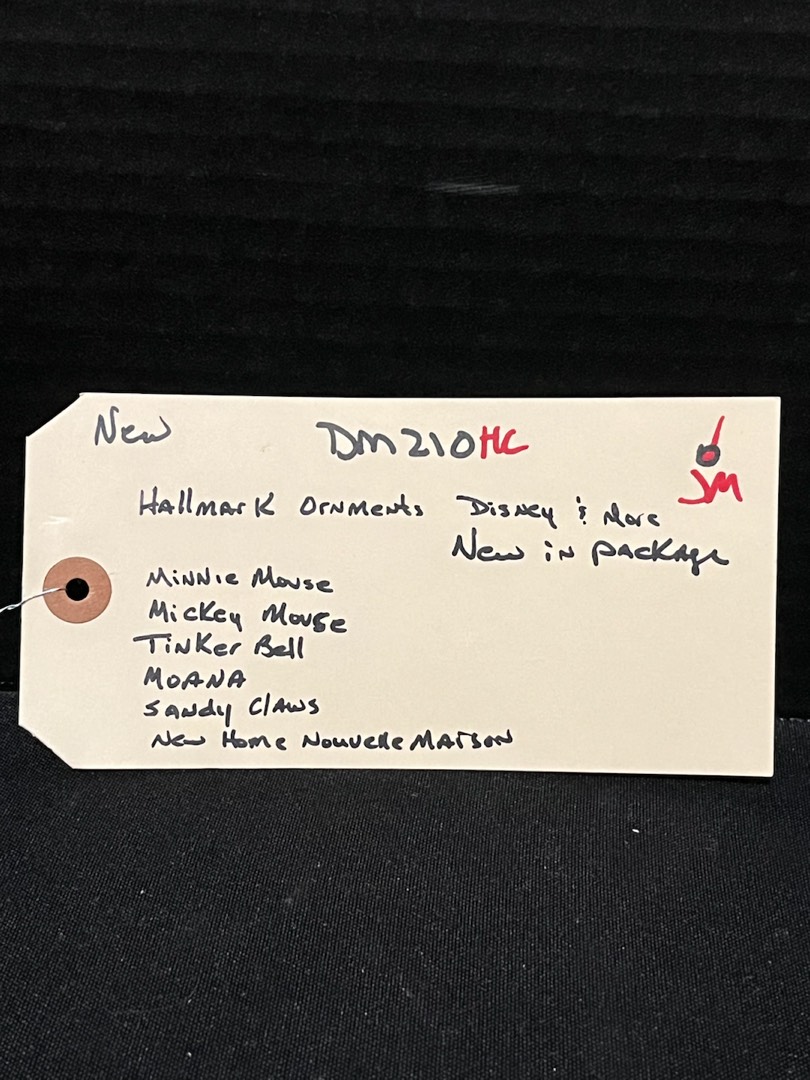 New DM210HC
JM
Hallmark Ornments Disney & More
New in package
Minnie Mouse
Mickey Mouse
Tinker Bell
MOANA
Sandy Claws
New Home Nouvelle Maison